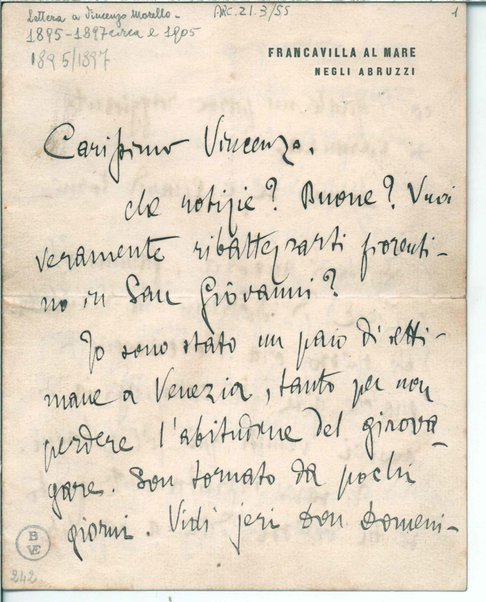 Lettera a Vincenzo Morello -
ARC.21.3/55
1
1895-1897 circa e 1905
1895/1897
FRANCAVILLA AL MARE
NEGLI ABRUZZI
Carissimo Vincenzo,
che notizie? Buone? Vuoi
veramente ribattezzarti fiorenti-
no in San Giovanni?
Io sono stato un paio di setti-
mane a Venezia, tanto per non
perdere l'abitudine del girova-
gare. Son tornato da pochi
giorni. Vidi jeri Don Domeni-
B
VE
242